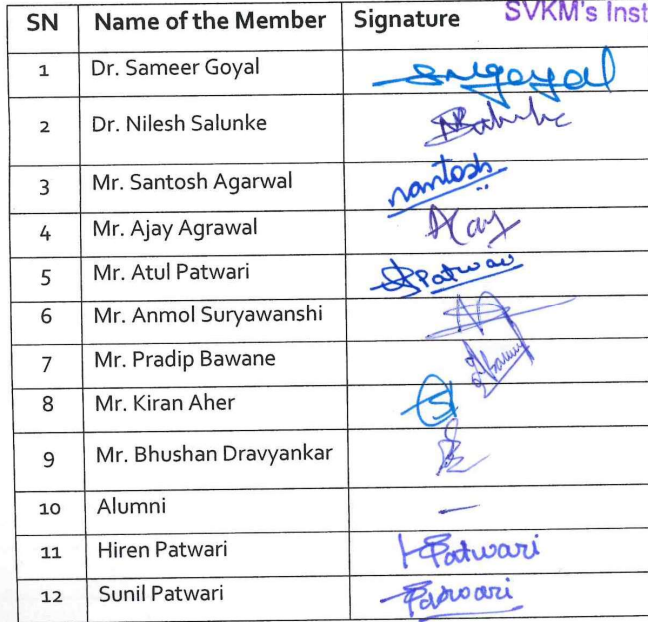 SVKM's Inst
SN Name of the Member Signature
1 Dr. Sameer Goyal smgoyal
2 Dr. Nilesh Salunke
3 Mr. Santosh Agarwal santosh
4 Mr. Ajay Agrawal Ajay
5 Mr. Atul Patwari Patwari
6 Mr. Anmol Suryawanshi
7 Mr. Pradip Bawane
8 Mr. Kiran Aher
9 Mr. Bhushan Dravyankar
10 Alumni —
11 Hiren Patwari HPatwari
12 Sunil Patwari Patwari